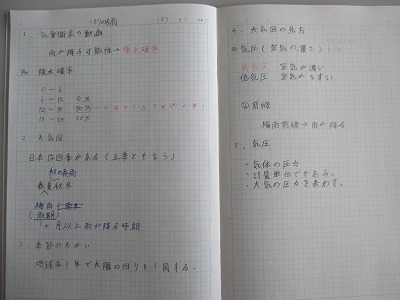 1. 気象衛星の動画
雨が降る可能性→降水確率
降水確率
0 - 6
6 - 12 0%
12 - 18
18 - 24
2. 天気図
日本は四季がある(五季とも言う)
秋の長雨
春夏秋冬
梅雨
(雨期)
1ヶ月以上雨が降る時期
3. 季節のちがい
地球は1年で太陽の回りを1周する。
4. 天気図の見方
①気圧(空気の濃さ)
高気圧 空気が濃い
低気圧 空気がうすい
②前線
梅雨前線→雨が降る
5. 気圧
・気体の圧力
・計量単位でもある。
・大気の圧力を表わす。